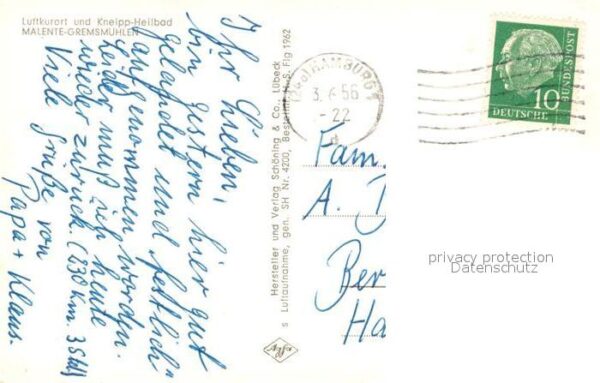 Luftkurort und Kneipp-Heilbad
MALENTE-GREMSMÜHLEN
Ihr Lieben,
bin gestern hier gut
gelandet und „festlich"
aufgenommen worden.
Leider muß ich heute
wieder zurück. (330 km. 3 Std)
Viele Grüße von
Papa + Klaus.
Hersteller und Verlag Schöning & Co., Lübeck
s Luftaufnahme, gen. SH Nr. 4200, Bestellnr. M. S. Flg 1962
Agfa
HAMBURG
56
-22
d
10
DEUTSCHE
BUNDESPOST
Fam.
A.
Ber
Ha
privacy protection
Datenschutz